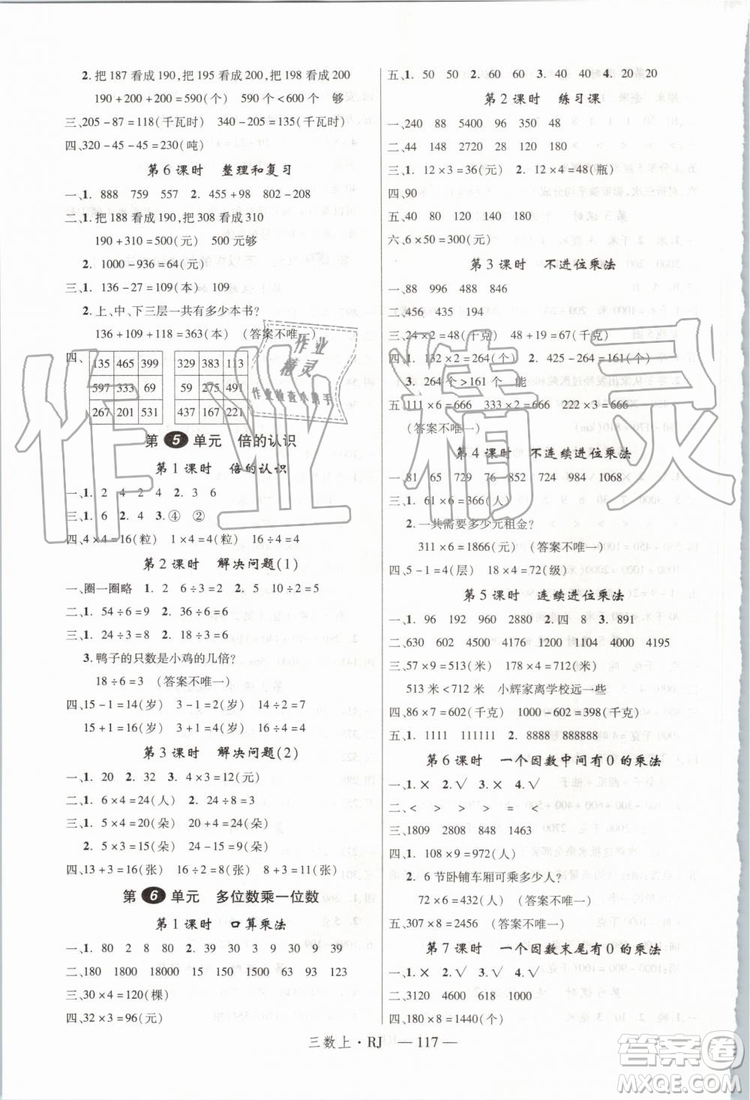 2. 把 187 看成 190,把 195 看成 200,把 198 看成 200
190+200+200=590(个)　590<600 个　够
三、205-87=118(千瓦时)　340-205=135(千瓦时)
四、320-45-45=230(吨)
第 6 课时　整理和复习
一、1. 888　759　557　2. 455+98　802-208
二、1. 把 188 看成 190,把 308 看成 310
190+310=500(元)　500 元够
2. 1000-936=64(元)
三、1. 136-109=27(本)
2. 上、中、下三层一共有多少本书?
136+109+118=363(本)　(答案不唯一)
四、
135 465 399　329 383 113
597 333 69　59 275 491
267 201 531　437 167 221
第 5 单元　倍的认识
第 1 课时　倍的认识
一、1. 2　4　2　4　2. 3　6
二、1. 3　2. 6　2. 4　3. ④　②
四、4×4=16(粒)　1×4=4(粒)
第 2 课时　解决问题(1)
一、圈一圈略　1. 2　6÷3=2　2. 5　10÷2=5
二、1. 24÷6=4　2. 36÷4=9
三、1. 54÷6=9　2. 18÷9=2
3. 鸭子的只数是小鸡的几倍?
18÷6=3　(答案不唯一)
四、15-1=14(岁)　3-1=2(岁)　14÷2=7
15+1=16(岁)　3+1=4(岁)　16÷4=4
第 3 课时　解决问题(2)
一、1. 20　2. 32　3. 4　4×3=12(元)
二、1. 6×4=24(人)　2. 8×4=32(元)
三、1. 5×4=20(朵)　20+4=24(朵)
2. 5×5=25(朵)　25-4=21(朵)
四、13+3=16(张)　16÷2=8(张)　8+3=11(张)
第 6 单元　多位数乘一位数
第 1 课时　口算乘法
一、80　20　2　8　80　39　30　9　30　9　39
二、180　1800　18000　150　1500　15000
三、30×4=120(棵)
四、32×3=96(元)
五、1. 50　50　2. 60　60　3. 40　40　4. 20　20
第 2 课时　练习课
一、240　88　5400　96　350　48
二、44　148　1720　80　120　0
三、1. 12×3=36(元)　2. 12×4=48(瓶)
四、90
五、40　80　120　140　180
六、6×50=300(元)
第 3 课时　不进位乘法
一、88　996　848　888
二、456　435　194
三、24×2=48(千克)　48+19=67(千克)
四、1. 132×2=264(个)　2. 425-264=161(个)
3. 264 个>161 个　能
五、111×6=666　333×2=666　222×3=666
(答案不唯一)
第 4 课时　不连续进位乘法
一、81　65　727　486
二、56　905　72　852　724　984　1068
三、1. 61×6=366(元)
2. 一共需要多少元租金?
311×6=1866(元)　(答案不唯一)
四、5-1=4(层)　18×4=72(级)
第 5 课时　连续进位乘法
一、1. 96　192　960　2880　2. 四　8　3. 891
二、630　602　4500　4176　1200　1104　4000　4195
三、57×9=513(米)　178×4=712(米)
513 米<712 米　小辉家离学校远一些
四、86×7=602(千克)　1000-602=398(千克)
五、1. 1111　11111　111111　2. 8888　888888
第 6 课时　一个因数中间有 0 的乘法
一、1. ×　2. √　3. √　4. ×
二、<　>　>　>　=　<
三、1809　2808　848　1463
四、1. 108×9=972(元)
2. 6 节卧铺车厢可乘多少人?
72×6=432(人)　(答案不唯一)
五、307×8=2456　(答案不唯一)
第 7 课时　一个因数末尾有 0 的乘法
一、1. ×　2. √　3. √　4. √
二、3120　900　2840　4800
四、180×8=1440(个)
三数上·RJ　— 117 —
作业精灵
作业检查小助手
答案圈
MXQE.COM